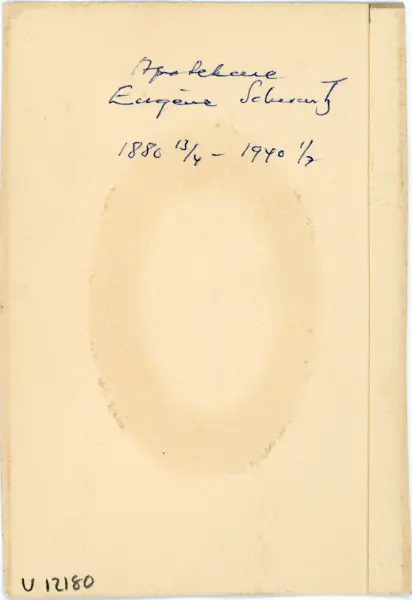 Apotekare
Eugène Schwartz
1880 13/4 – 1940 1/2
U 12180